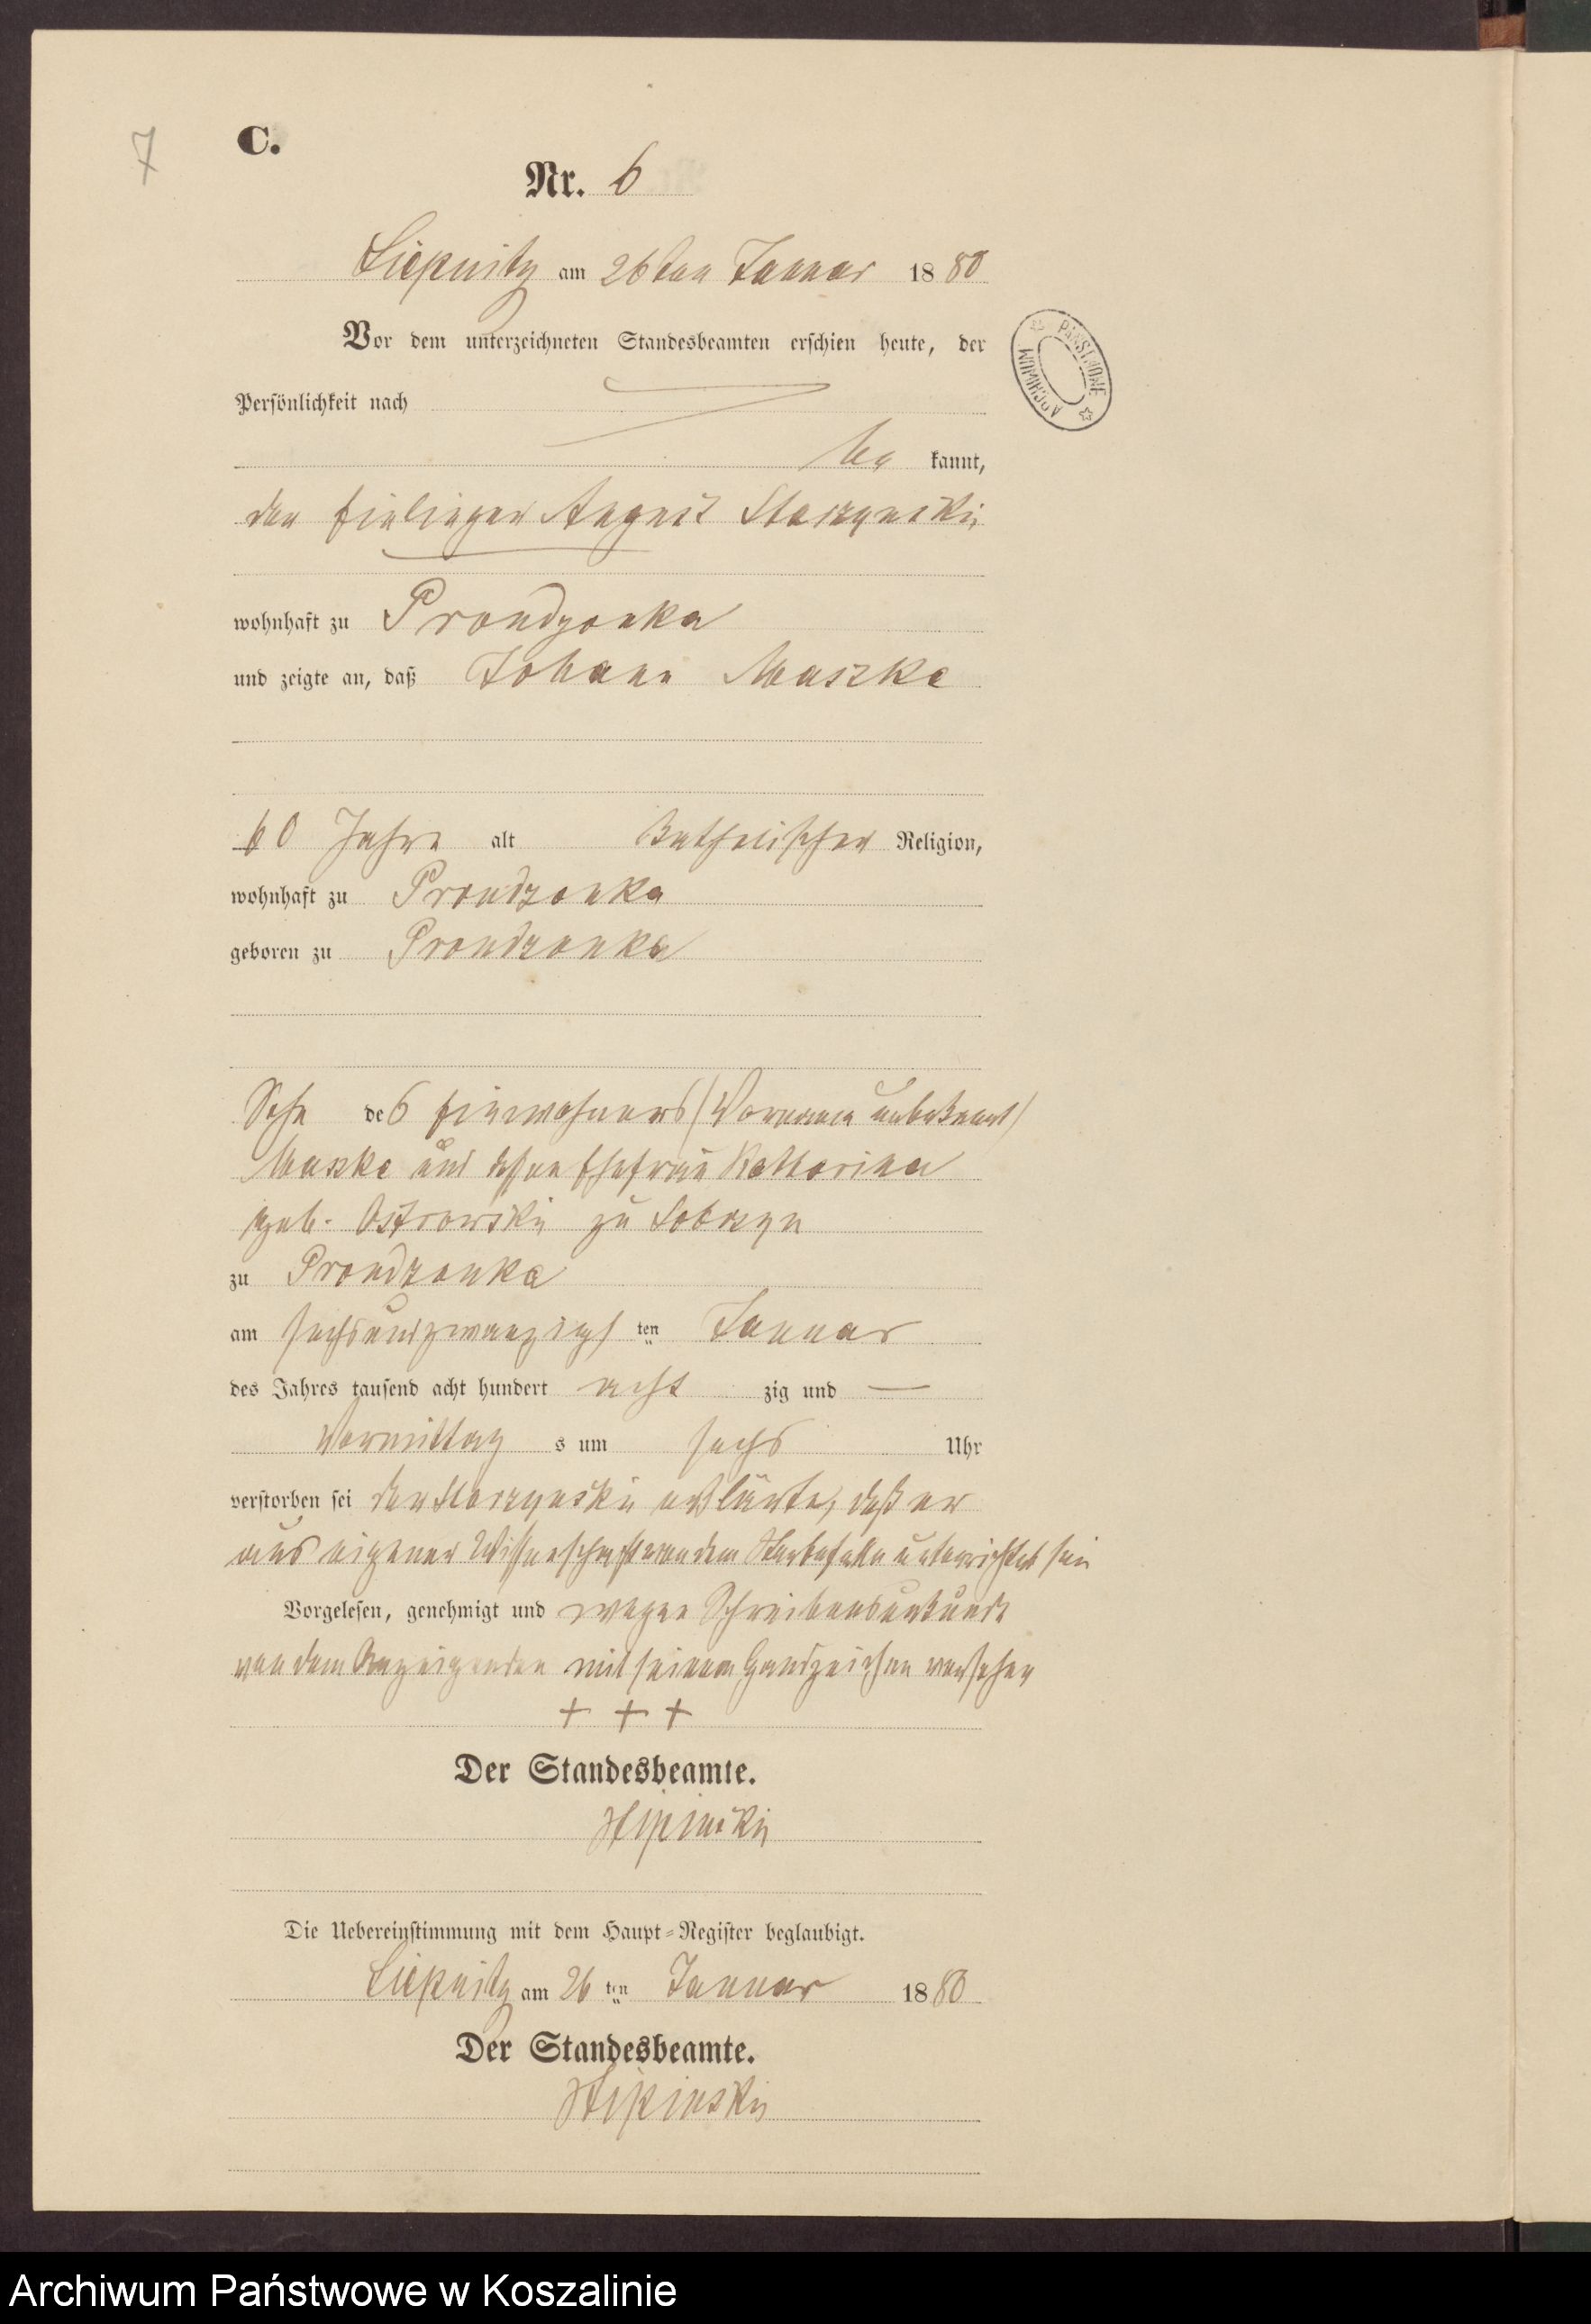 7
C.
Nr. 6
Liepnitz am 26ten Januar 1880
Vor dem unterzeichneten Standesbeamten erschien heute, der
Persönlichkeit nach
be kannt,
den Einlieger August Starzynski
wohnhaft zu Prondzonka
und zeigte an, daß Johann Maszke
60 Jahre alt Katholischer Religion,
wohnhaft zu Prondzonka
geboren zu Prondzonka
Sohn des Einwohners (Vorname unbekannt)
Maszke und dessen Ehefrau Katharina
geb. Ostrowski zu
zu Prondzonka
am sechsundzwanzigs ten Januar
des Jahres tausend acht hundert acht zig und —
Vormittag s um sechs Uhr
verstorben sei der Starzynski erklärte, daß er
aus eigener Wissenschaft von dem Sterbefalle unterrichtet sei
Vorgelesen, genehmigt und wegen Schreibensunkunde
von dem Anzeigenden mit seinem Handzeichen versehen
+ + +
Der Standesbeamte.
Die Uebereinstimmung mit dem Haupt=Register beglaubigt.
Liepnitz am 26 ten Januar 1880
Der Standesbeamte.
ARCHIWUM PAŃSTWOWE
Archiwum Państwowe w Koszalinie